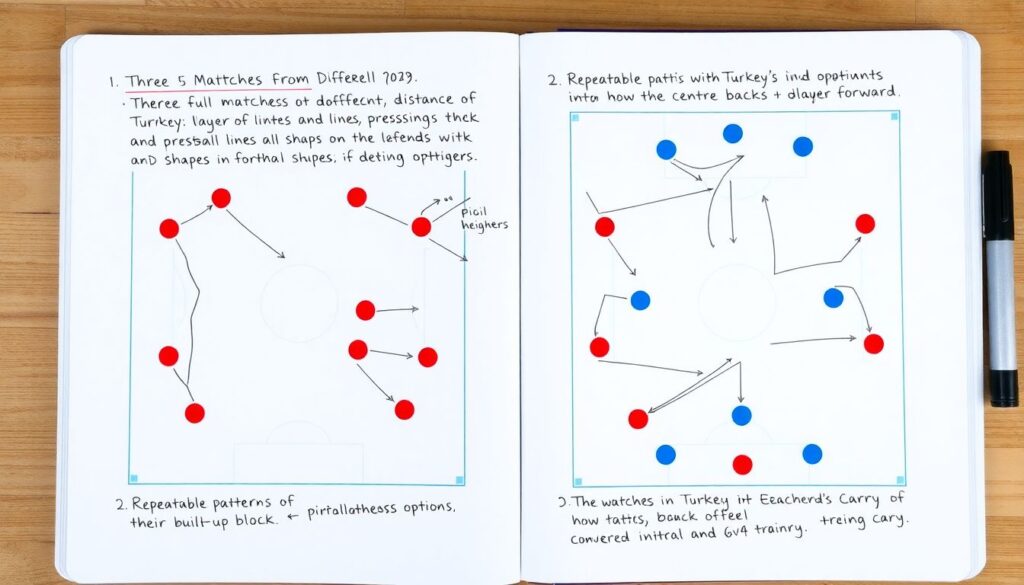 1. Three 5 Mattches From Differell 7023.
· Theree full matchess ot dofffecnt, distance of
Turrkey: layer of lintes and lines, presssings thck
and prestsall lines all shaps on the lefends witk
anD shapes in forthal shipes, if deting opttigers.
picil
heighers
2. Repeatable patterns of
their built-up block. ← pirtallatheoss options,
2. Repeatable pattis with Turkey's ind opotiunts
inton how the centre backs + dlayer forward.
Ɔ. The watches in Turkey int Eeacherd's Carry of
how tattis, bouck offeel treing cary.
convered initral and 6v4 trainry.